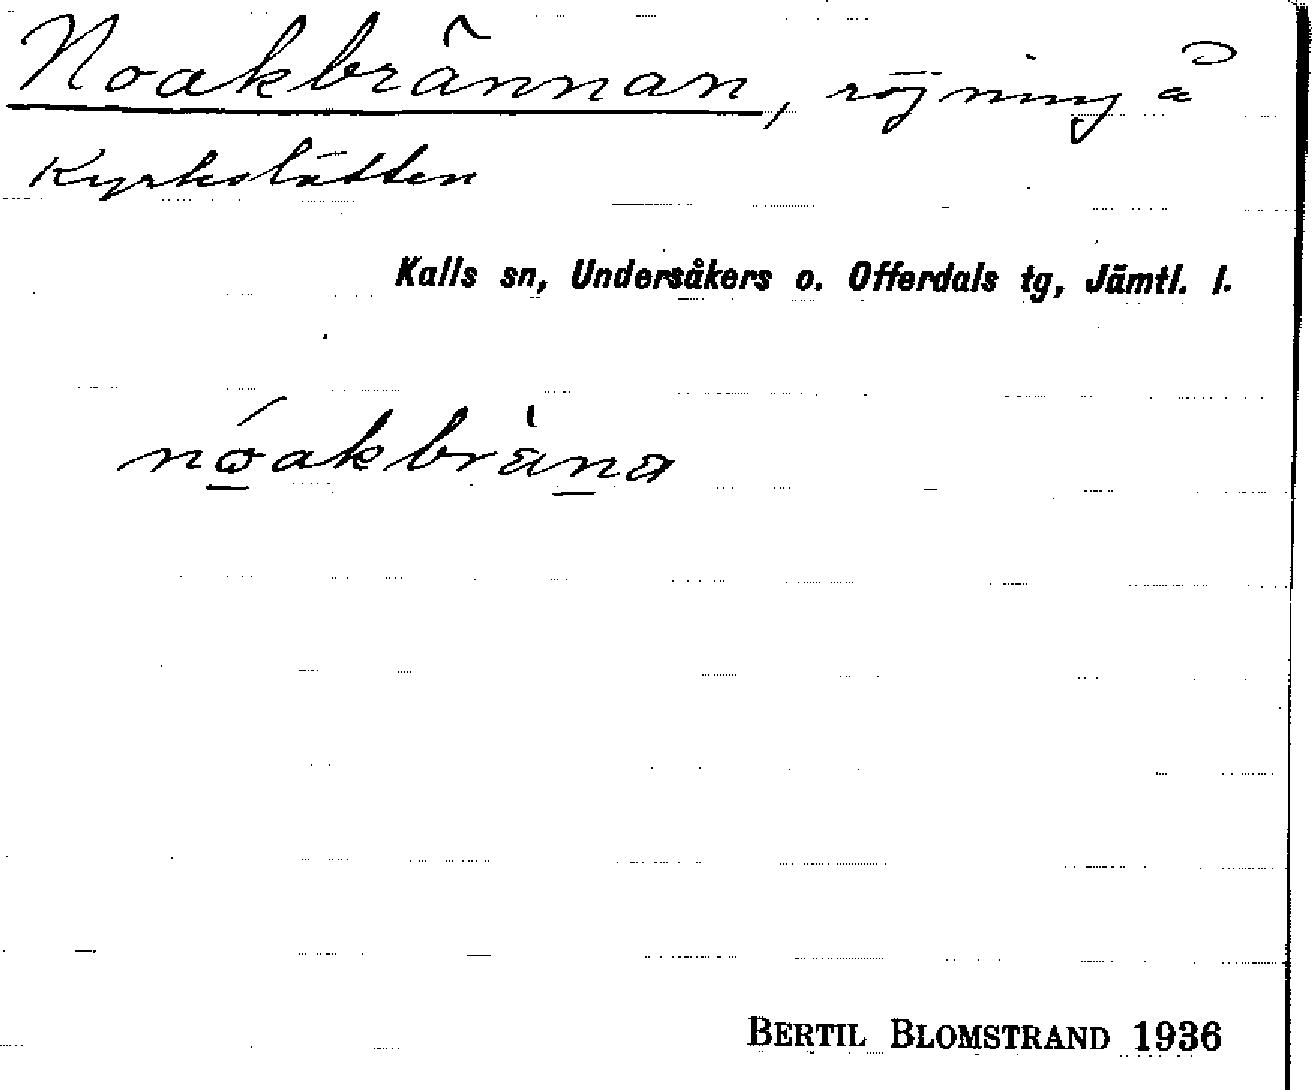 Noakbrännan, röjning å
Kyrkslätten
Kalls sn, Undersåkers o. Offerdals tg, Jämtl. l.
nóakbràna
BERTIL BLOMSTRAND 1936